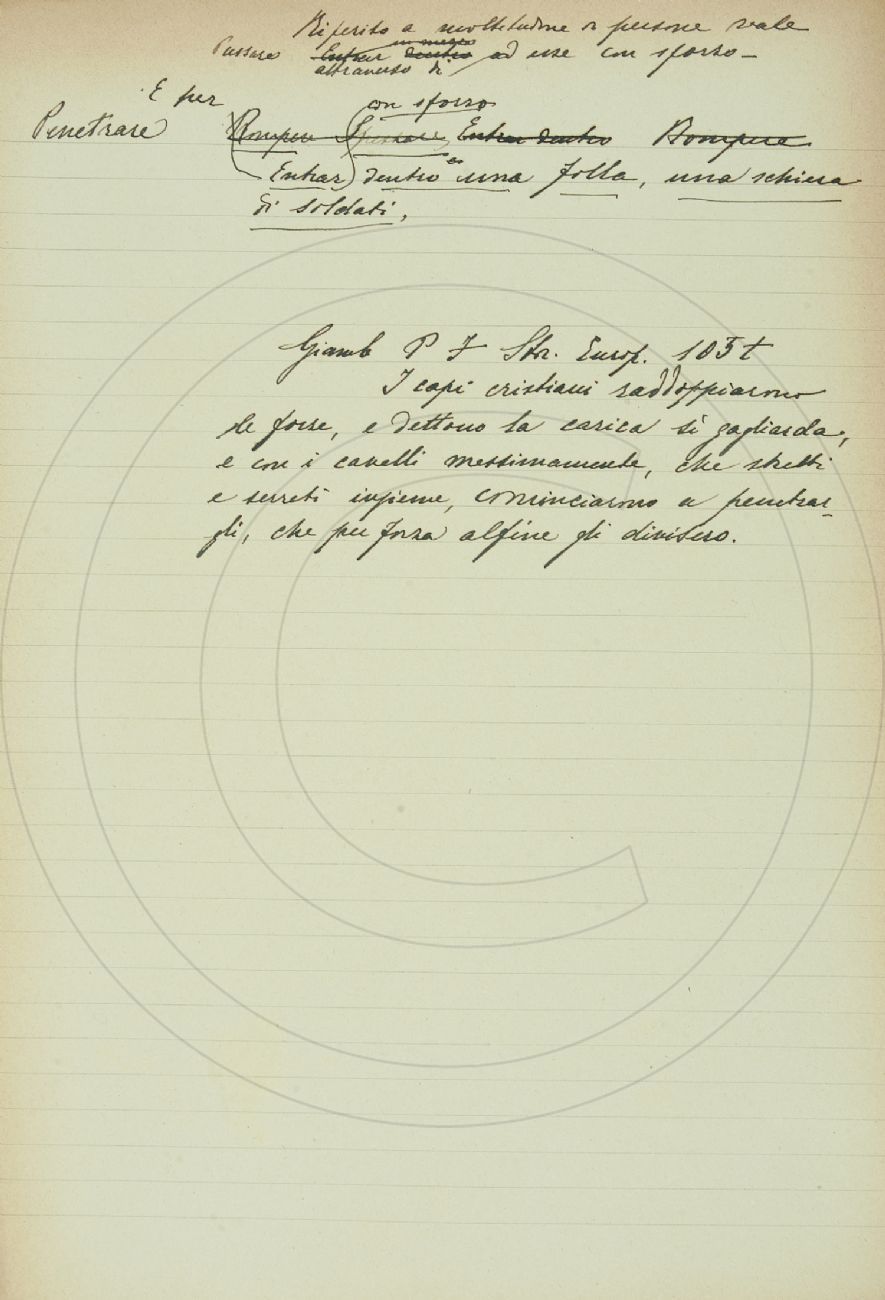 Riferito a moltitudine o persone vale
in mezzo
Passare Entrar dentro ad esse con sforzo —
attraverso di
E per
con sforzo
Penetrare Rompere Spezzare, Entrar dentro Rompere
Entrar dentro una folla, una schiera
di soldati,
Giamb P F Stor. Europ. 105t
I capi cristiani raddoppiarono
le forze, e dettono la carica sì gagliarda,
e con i cavalli messimamente, che stretti
e serreti insieme, cominciarono a penetrar-
gli, che per forza alfine gli divisero.